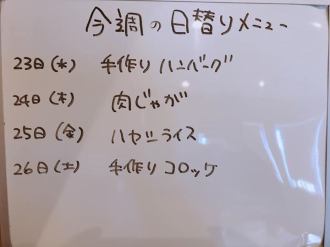 今週の日替りメニュー
23日(水) 手作りハンバーグ
24日(木) 肉じゃが
25日(金) ハヤシライス
26日(土) 手作りコロッケ